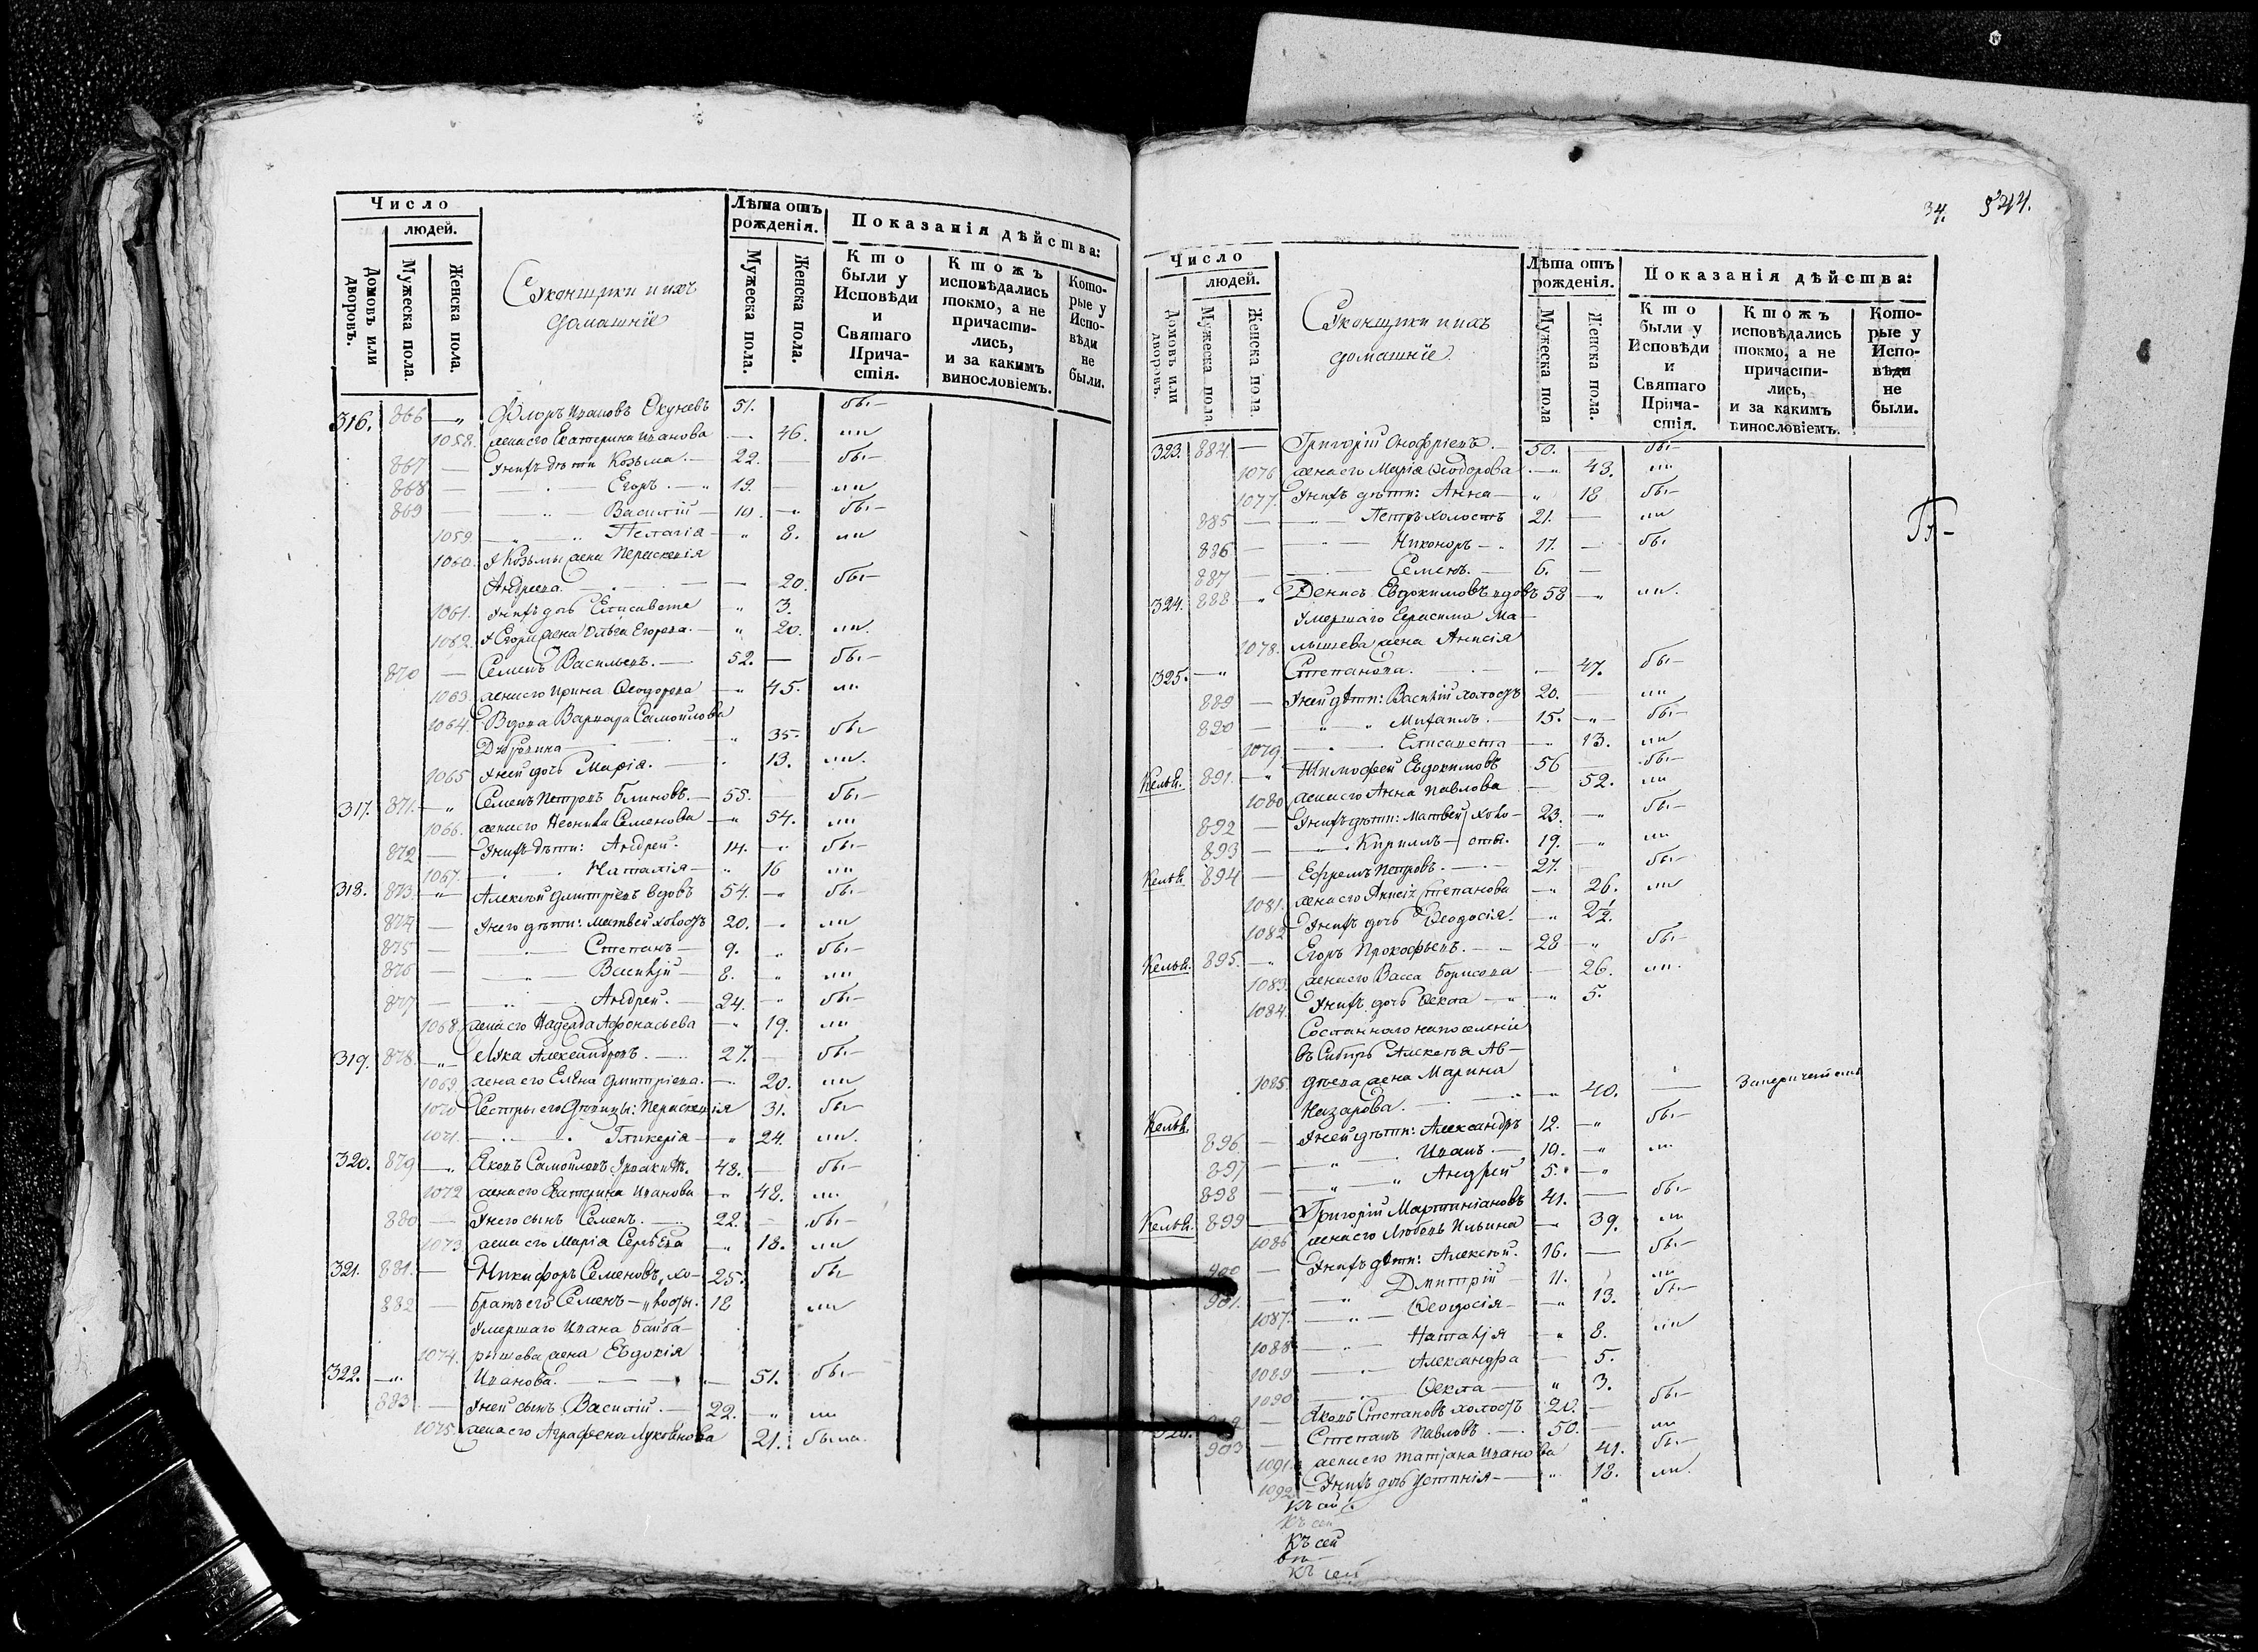 Число
людей.
Домовъ или дворовъ.
Мужеска пола.
Женска пола.
домашніе
Лѣта отъ рожденія.
Мужеска пола.
Женска пола.
Показанія дѣйства:
Кто были у Исповѣди и Святаго Причастія.
Ктожъ исповѣдались токмо, а не причастились, и за какимъ винословіемъ.
Которые у Исповѣди не были.
316. 866 Ивановъ Окуневъ 51. бы–
1058. жена его Екатерина Иванова 46. ли
867 У нихъ дѣти Козьма. 22. бы–
868 Егоръ 19. ли
869 Василій 10. бы–
1059 Пелагія 8. ли
1060. У Козьмы жена Параскевія
Андреева. 20. бы–
1061. У нихъ дочь Елисавета 3.
1062. У Егора жена Ольга Егорова. 20. ли.
870 Семенъ Васильевъ. 52. бы–
1063 жена его Ирина Ѳеодорова 45. ли
1064. Вдова Варвара Самойлова
35. бы–
1065 У ней дочь Марія. 13. ли.
317. 871. Семенъ Петровъ Блиновъ. 55. бы–
1066. жена его Неонила Семенова 54. ли
872 У нихъ дѣти: Андрей. 14. бы–
1067. Наталія 16 ли
318. 873. Алексѣй Дмитріевъ вдовъ 54. бы–
874 У него дѣти: Матвей холостъ 20. ли
875 Степанъ 9. бы–
876 Василій 8. ли
877 Андрей. 24. бы–
1068. жена его Надежда Афонасьева 19. ли
319. 878. Александровъ. 27. бы–
1069. жена его Елена Дмитріева. 20. ли
1070 Сестры его дѣвицы: Параскевія 31. бы–
1071. Гликерія 24. ли.
320. 879 Яковъ Самойловъ 48. бы–
1072 жена его Екатерина Иванова 48. ли
880 У него сынъ Семенъ. 22. бы–
1073. жена его Марія 18. ли
321. 881. Никифоръ Семеновъ, хо- 25. бы
882 братъ его Семенъ – лосты. 18 ли
Умершаго Ивана Байба-
1074. рышева жена Евдокія
322. Иванова. 51. бы–
883 У ней сынъ Василій. 22. ли
1075. жена его Аграфена Лукоянова 21. была.
34. 544.
Число
людей.
Домовъ или дворовъ.
Мужеска пола.
Женска пола.
домашніе.
Лѣта отъ рожденія.
Мужеска пола
Женска пола.
Показанія дѣйства:
Кто были у Исповѣди и Святаго Причастія.
Ктожъ исповѣдались токмо, а не причастились, и за какимъ винословіемъ.
Которые у Исповѣди не были.
323. 884. Григорій Онофріевъ. 50. бы–
1076 жена его Марія Ѳеодорова 43. ли
1077. У нихъ дѣти: Анна 18 бы–
885 Петръ холостъ 21. ли
886 Никоноръ 17. бы
887 Семенъ. 6.
324. 888. Денисъ Евдокимовъ вдовъ 58 ли.
Умершаго Герасима Ма-
1078. лышева жена Анисія
325. Степанова. 47. бы–
889 У ней дѣти: Василій холостъ 20. ли
820 Михаилъ. 15. бы–
1079 Елисавета 13. ли
891. Тимофей Евдокимовъ 56 бы–
1080 жена его Анна Павлова 52. ли
892 У нихъ дѣти: Матвей холо- 23. бы–
893 Кириллъ – сты. 19. ли
894 Ефремъ Петровъ. 27. бы–
1081. жена его Анисія Степанова 26. ли
1082 У нихъ дочь Ѳеодосія. 2½.
895. Егоръ Прокофьевъ. 28 бы–
1083. жена его Васса Борисова 26. ли.
1084. У нихъ дочь Ѳекла 5.
Сосланнаго на поселеніе
въ Сибирь Алексѣя Ав-
1085. дѣева жена Марина
Назарова. 40.
896 У ней дѣти: Александръ 12. бы–
897 Иванъ 10. ли
898 Андрей 5.
899 Григорій Мартиніановъ 41. бы–
1086 жена его Любовь Ильина 39. ли
900 У нихъ дѣти: Алексѣй. 16. бы–
901. Дмитрій 11. ли
1087. Ѳеодосія 13. бы–
1088 Наталія 8. ли
1089 Александра 5.
1090 Ѳекла 3.
Яковъ Степановъ холостъ 20. бы–
903 Степанъ Павловъ. 50. ли
1091. жена его Татіана Иванова 41. бы–
1092 У нихъ дочь Устинія 18. ли.
Къ сей
Къ сей
Къ сей